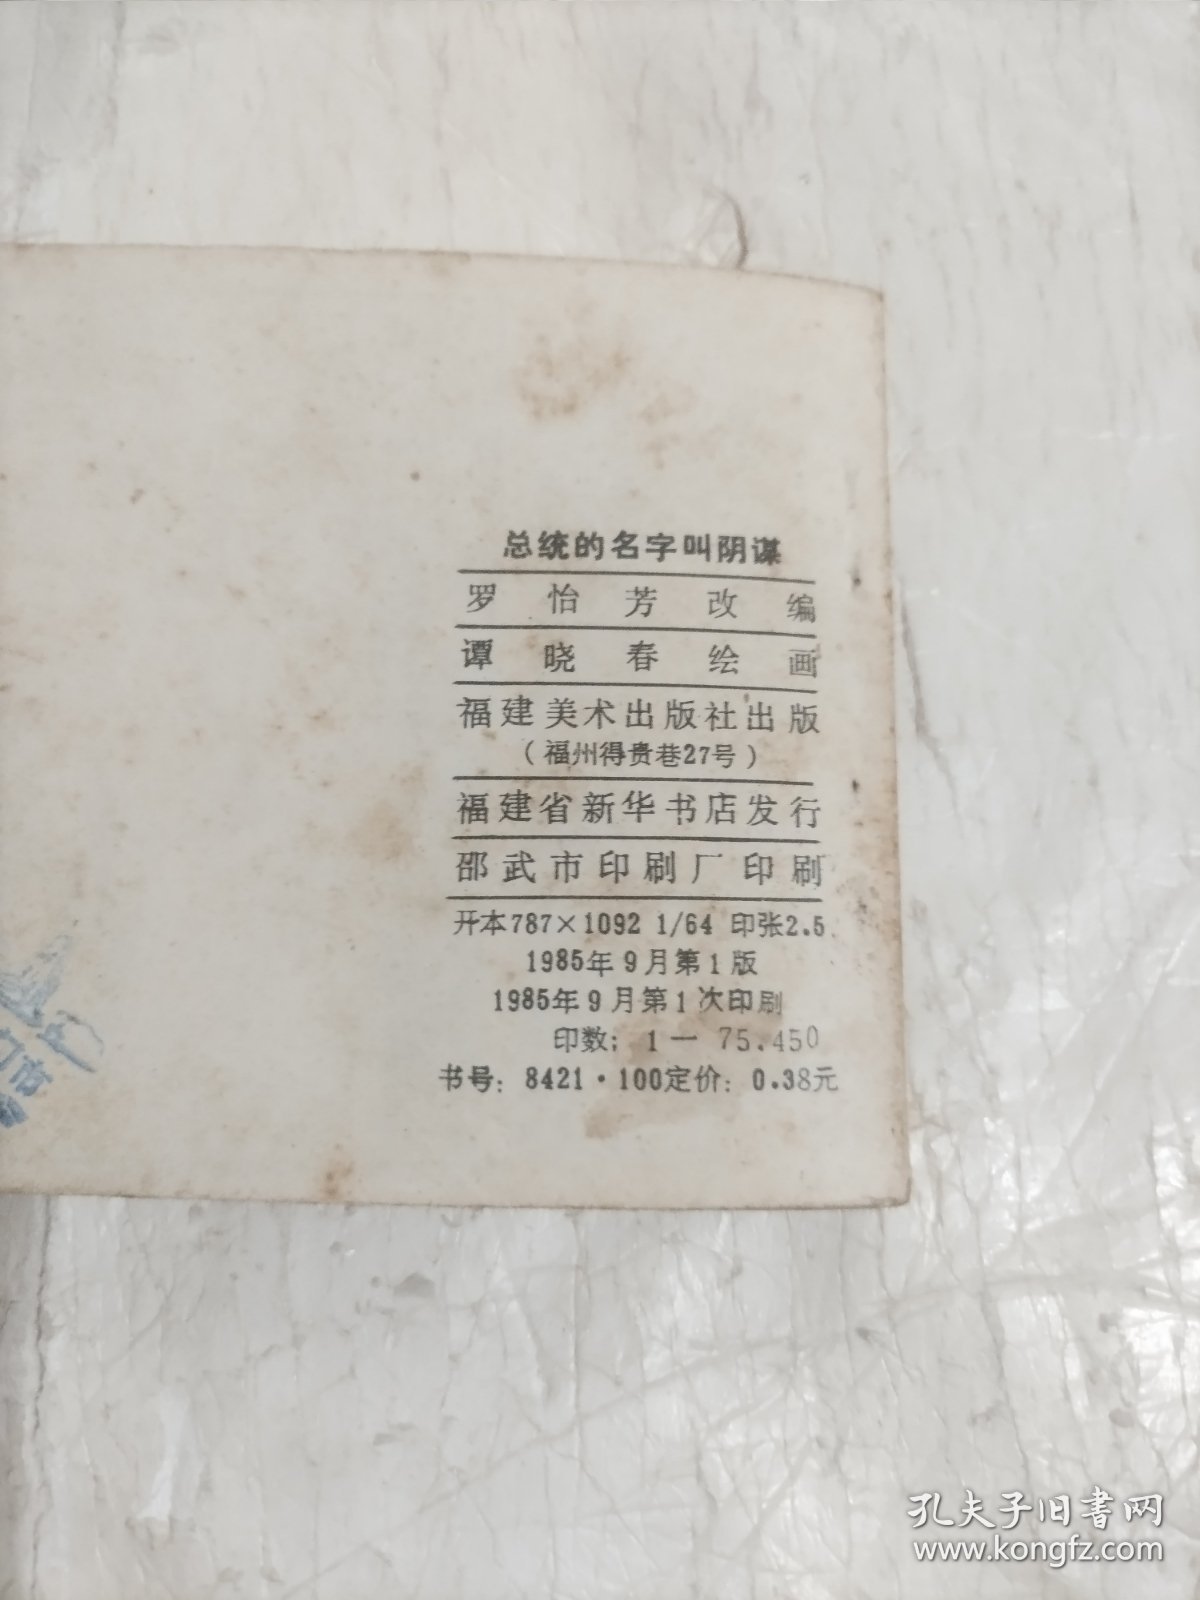 总统的名字叫阴谋
罗怡芳改编
谭晓春绘画
福建美术出版社出版
（福州得贵巷27号）
福建省新华书店发行
邵武市印刷厂印刷
开本787×1092 1/64 印张2.5
1985年9月第1版
1985年9月第1次印刷
印数：1— 75.450
书号：8421·100定价：0.38元
孔夫子旧书网
www.kongfz.com